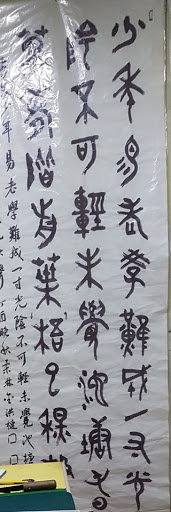 少年易老學難成一寸光
陰不可輕未覺池塘春
草夢階前葉梧已秋聲
年易老學難成一寸光陰不可輕未覺池塘